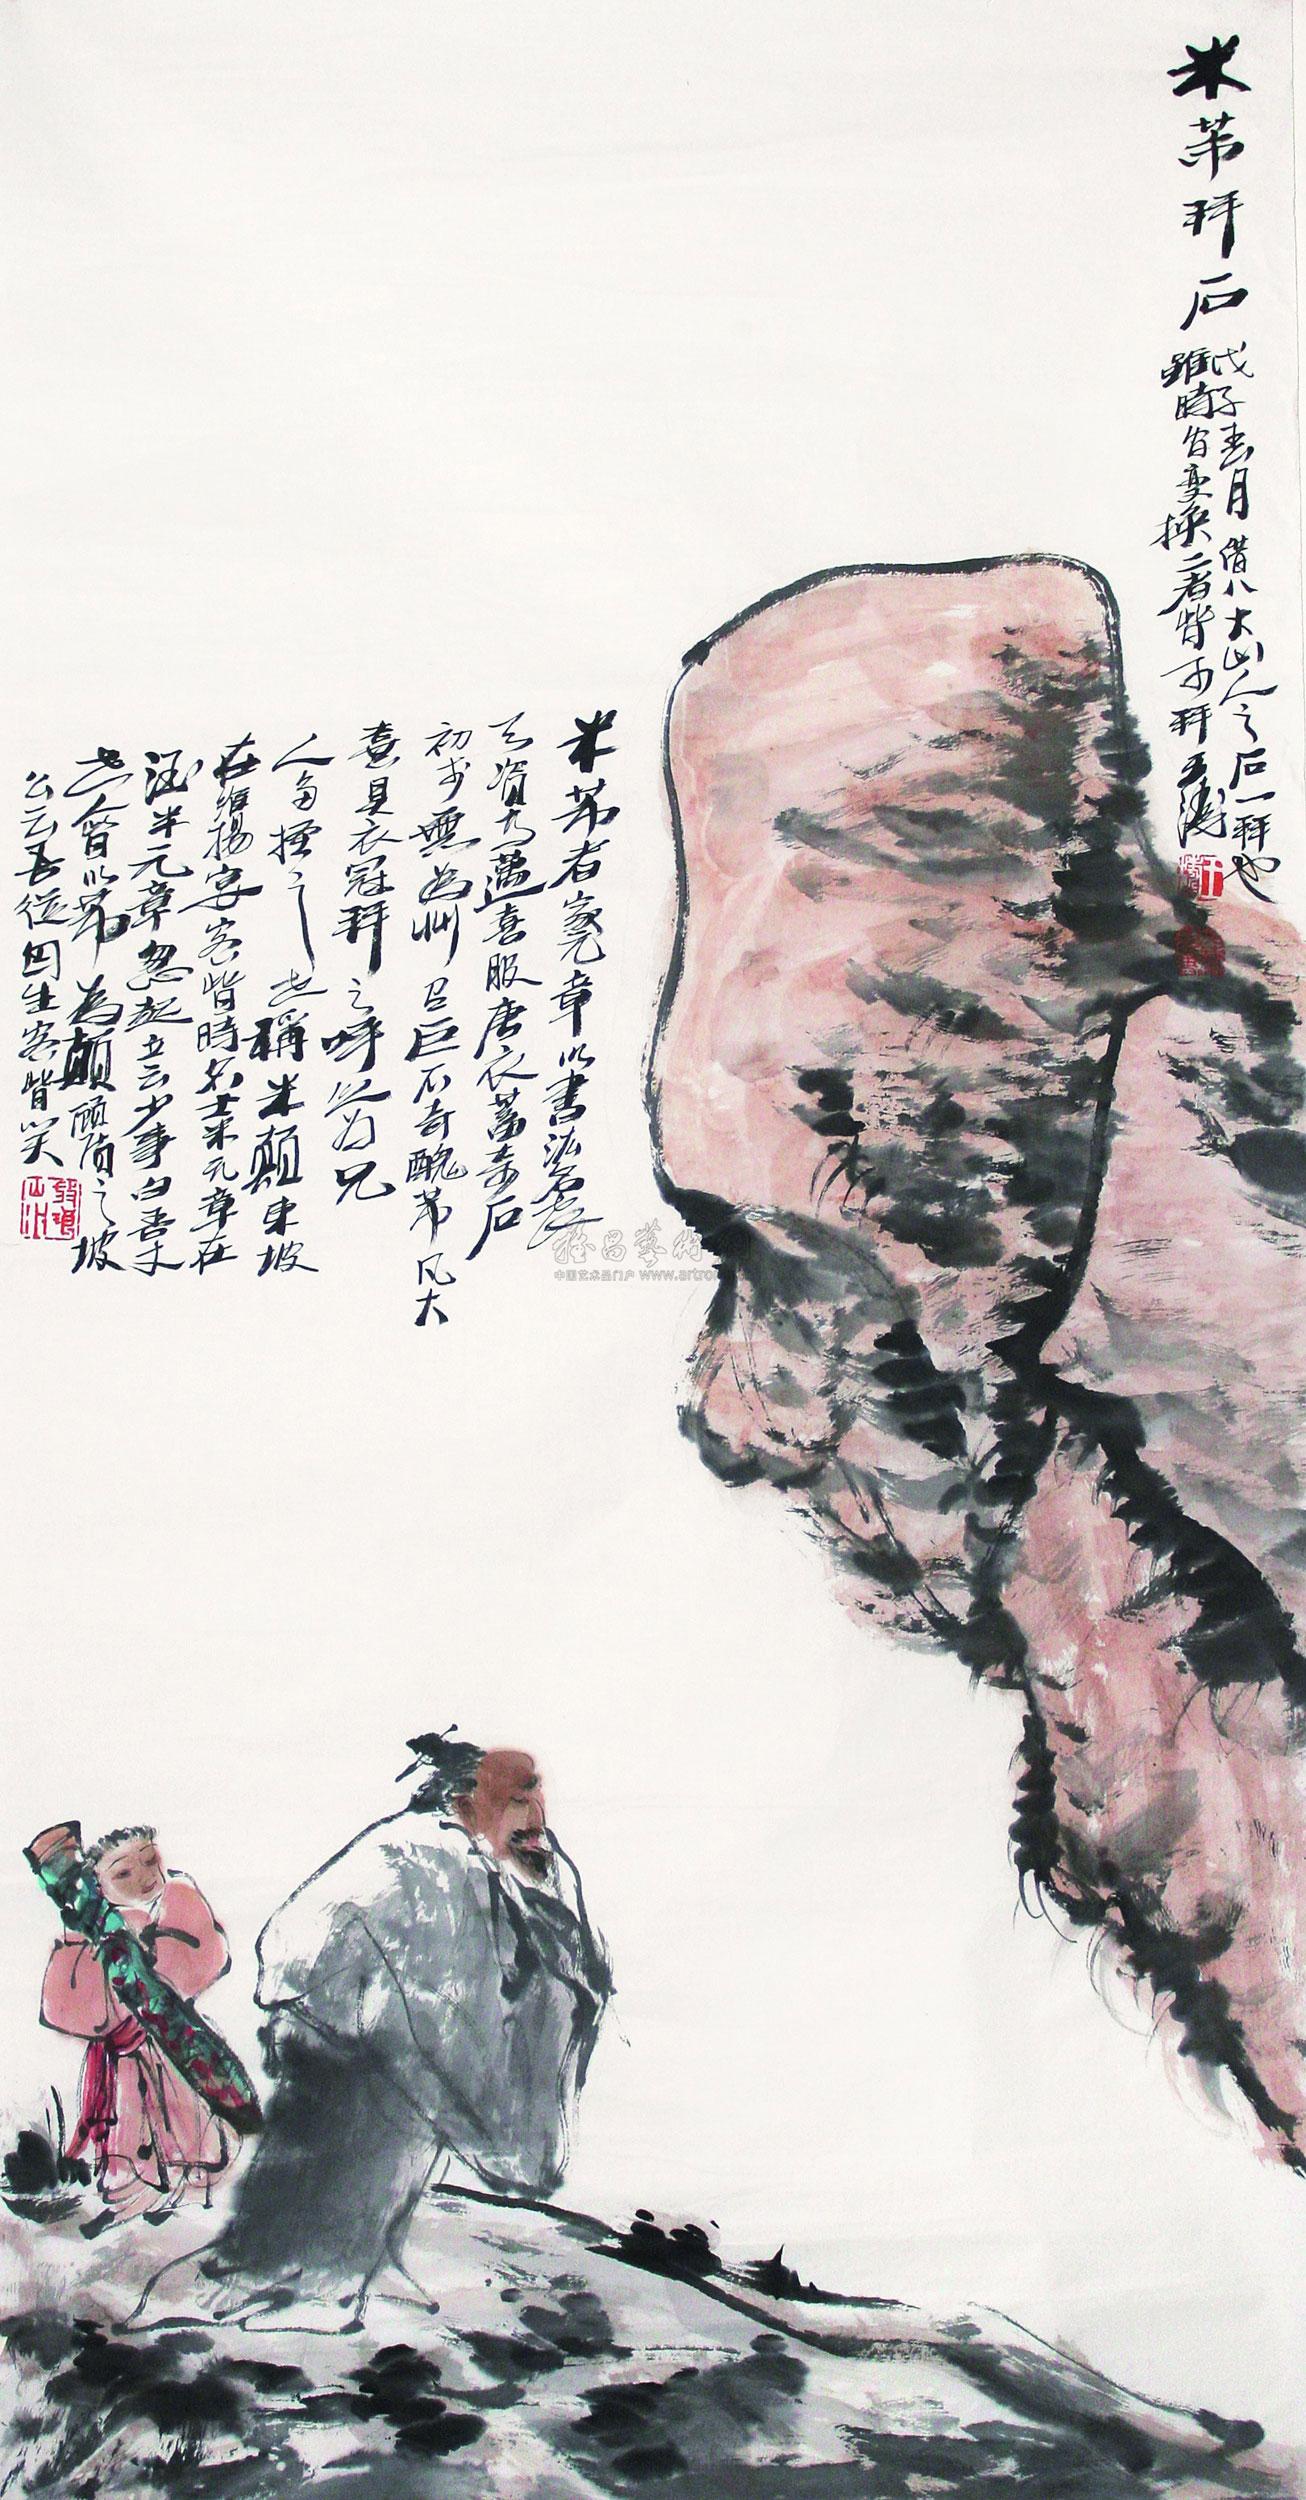 米芾拜石
戊子春月借八大山人之石一拜也
雖時宙變換二者皆可拜王濤
米芾者寃章以書法名世
天資高邁喜服唐衣蓄奇石
初步無為州 巨石奇醜芾凡大
喜具衣冠拜之呼之為兄
人多怪之世稱米顛東坡
在維揚宴客皆時名士米元章在
酒半元章忽起立云少事白吾丈
世人皆以芾為顛願質之坡
公云吾從因生客皆笑
中国艺术品门户 www.artron